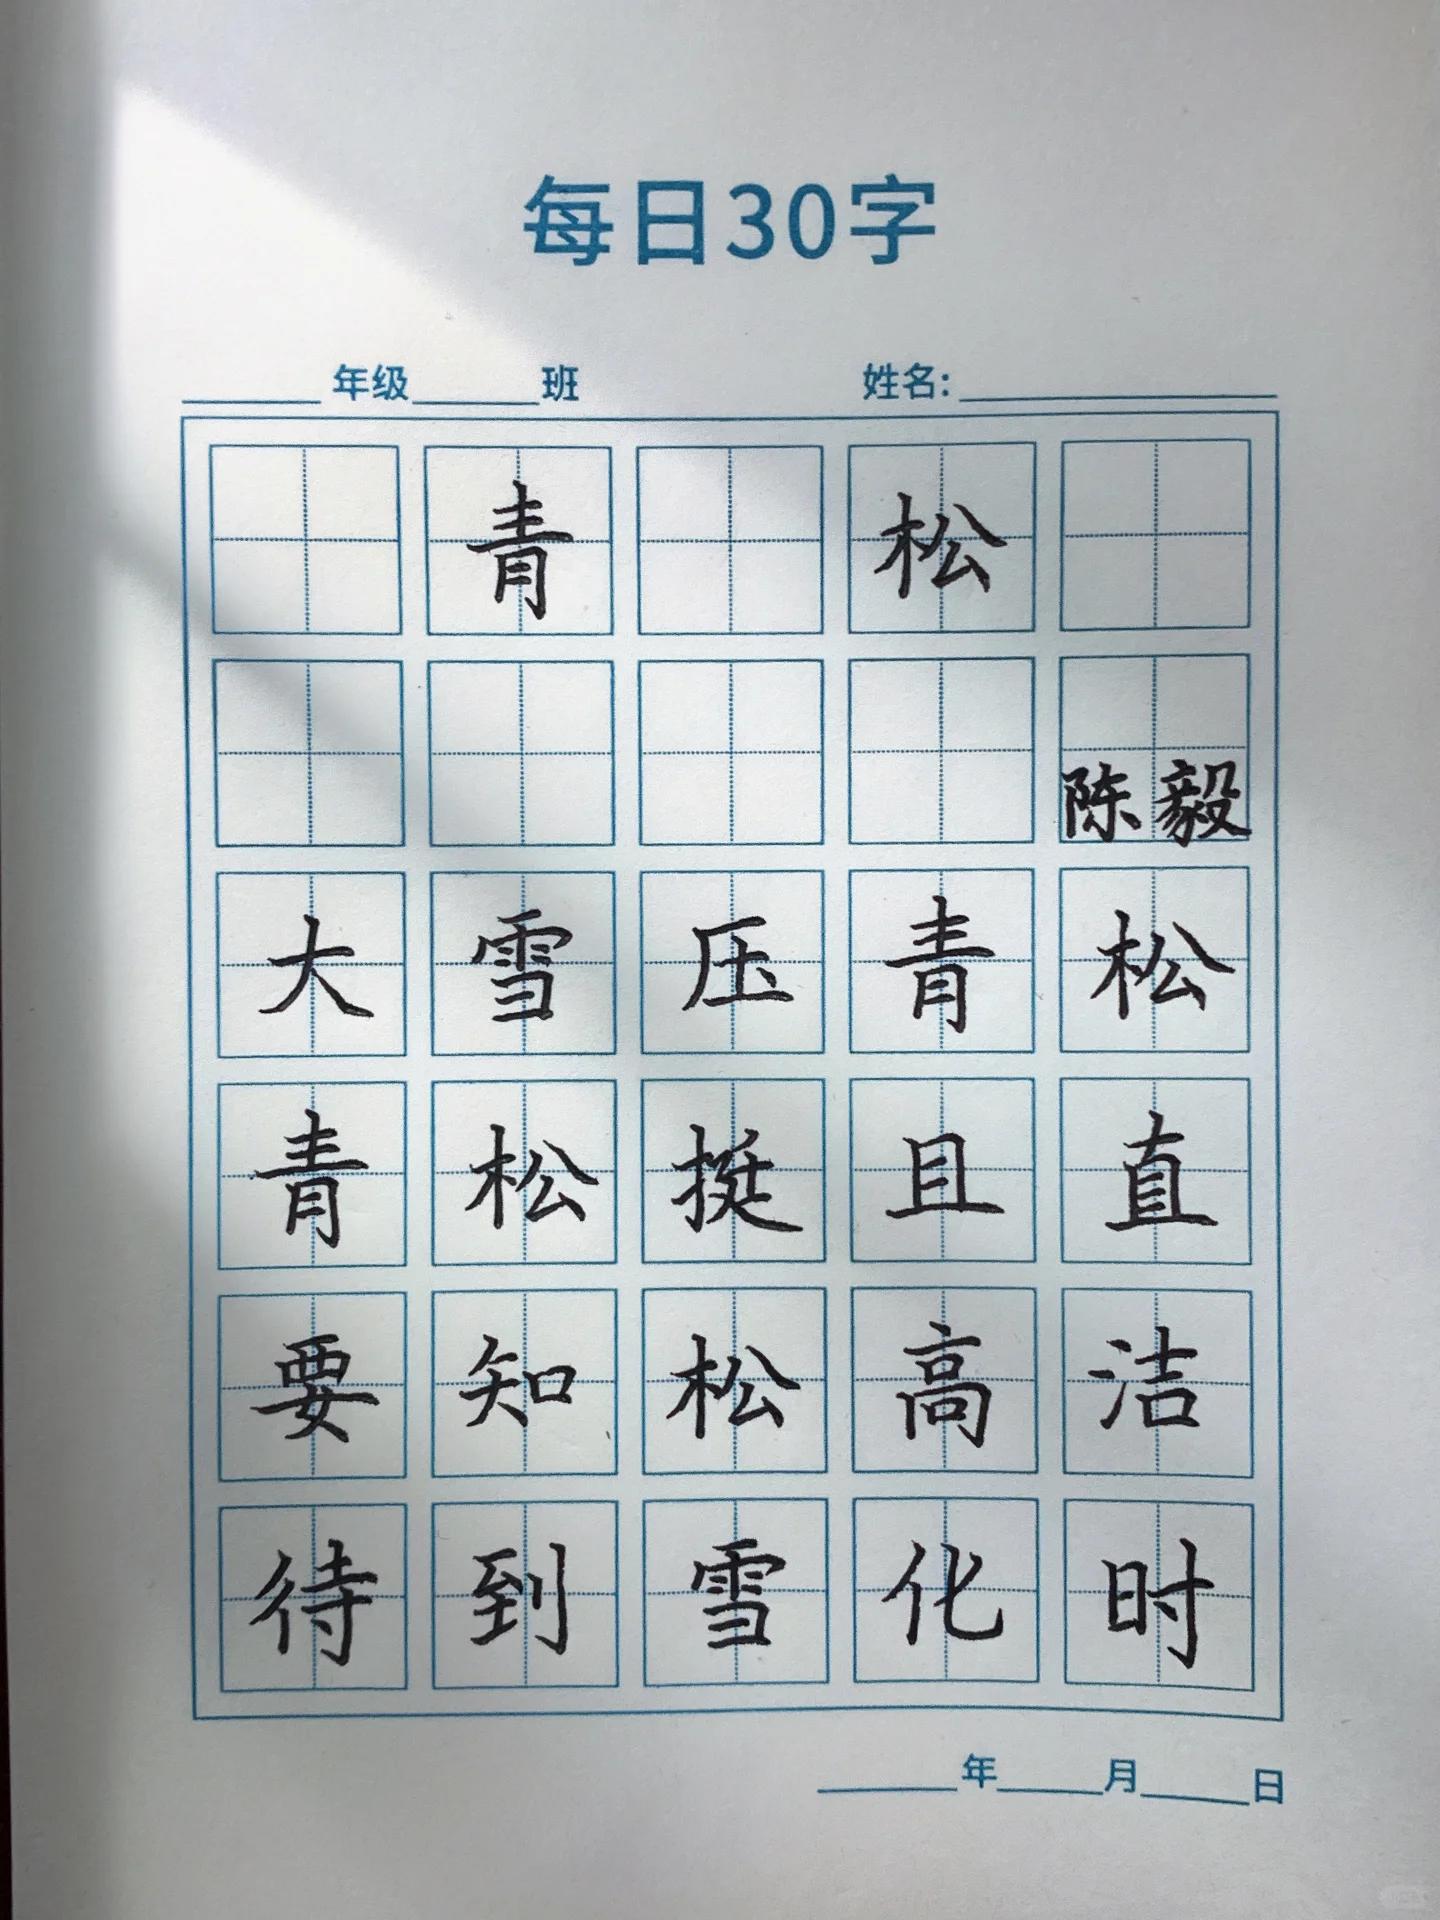 每日30字
年级 班 姓名:
青 松
陈毅
大雪压青松
青松挺且直
要知松高洁
待到雪化时
年 月 日